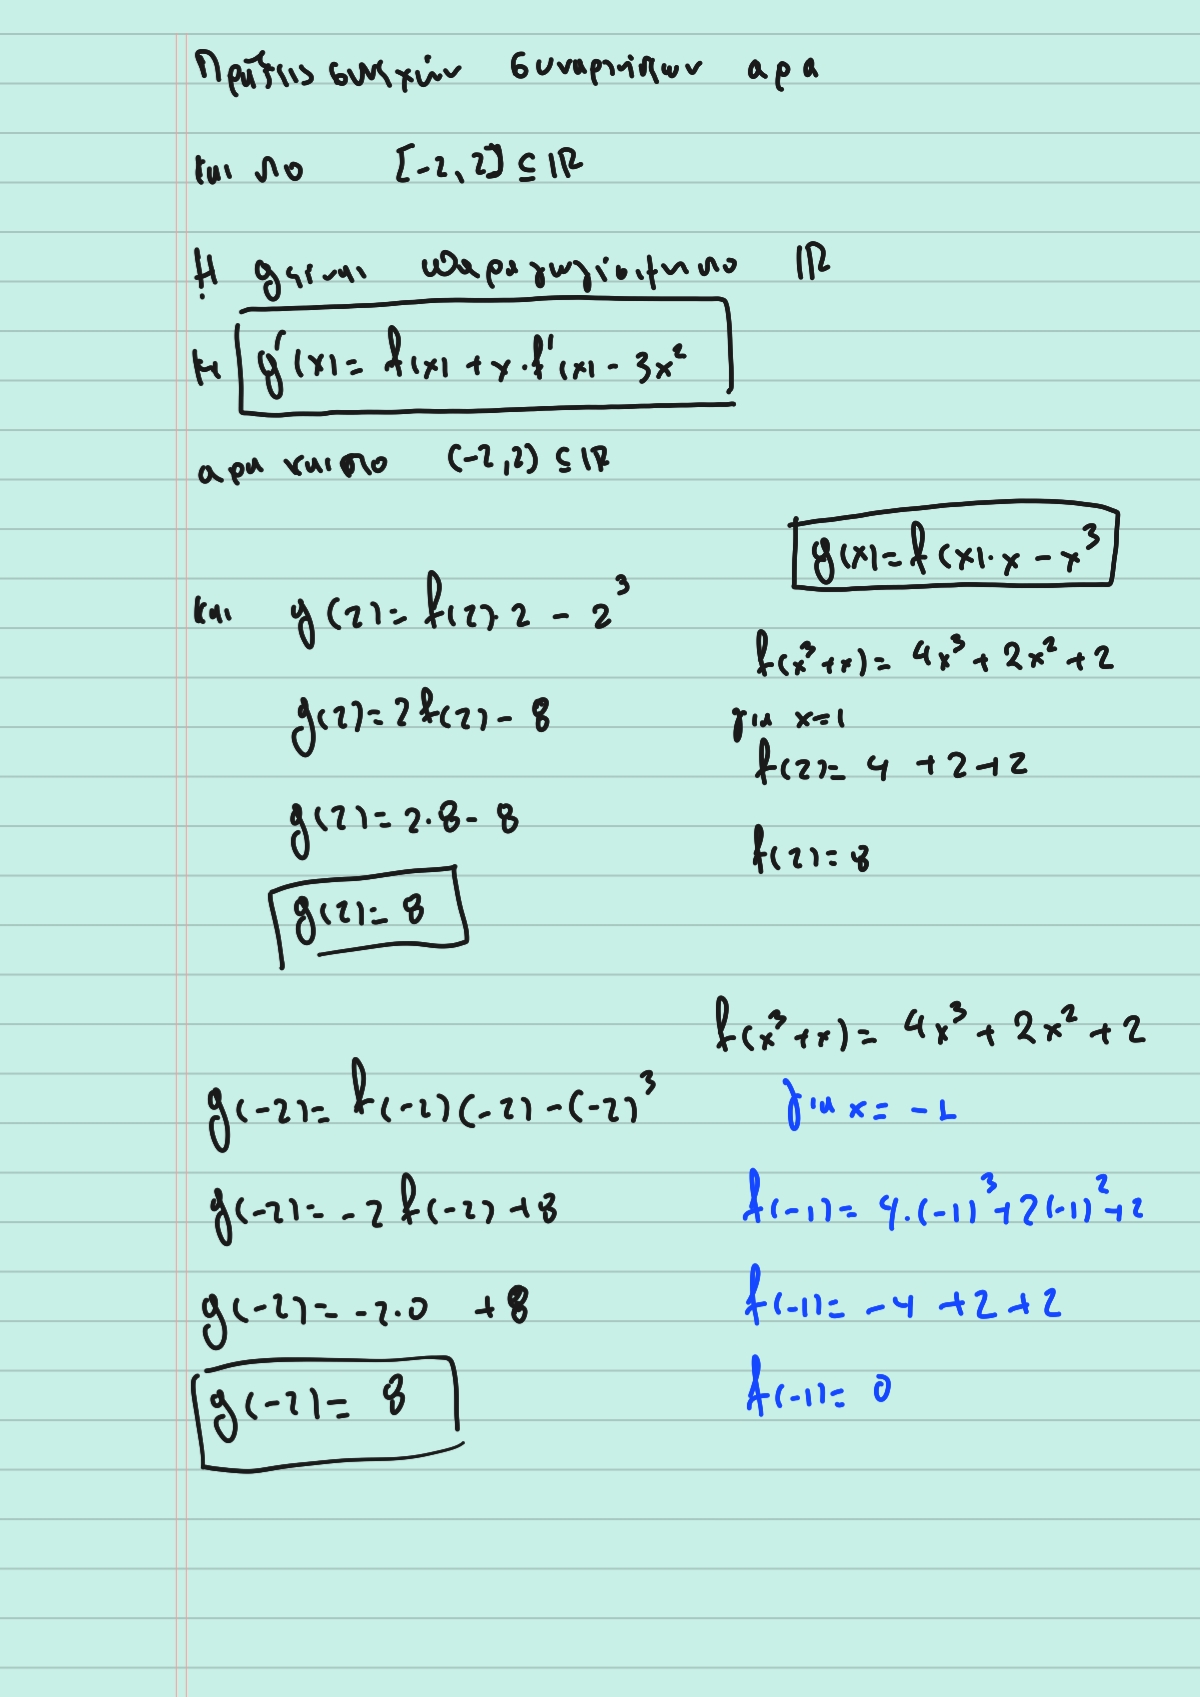 Πράξεις συνεχών συναρτήσεων αρα
και στο [-2,2] ⊆ ℝ
Η g είναι παραγωγίσιμη στο ℝ
με g'(x) = f(x) + x·f'(x) - 3x²
αρα και στο (-2,2) ⊆ ℝ
g(x) = f(x)·x - x³
και g(2) = f(2)·2 - 2³
f(x³+x) = 4x³ + 2x² + 2
g(2) = 2f(2) - 8
για x=1
f(2) = 4 + 2 + 2
g(2) = 2·8 - 8
f(2) = 8
g(2) = 8
f(x³+x) = 4x³ + 2x² + 2
g(-2) = f(-2)(-2) - (-2)³
για x = -1
g(-2) = -2 f(-2) + 8
f(-1) = 4·(-1)³ + 2(-1)² + 2
g(-2) = -2·0 + 8
f(-1) = -4 + 2 + 2
g(-2) = 8
f(-1) = 0